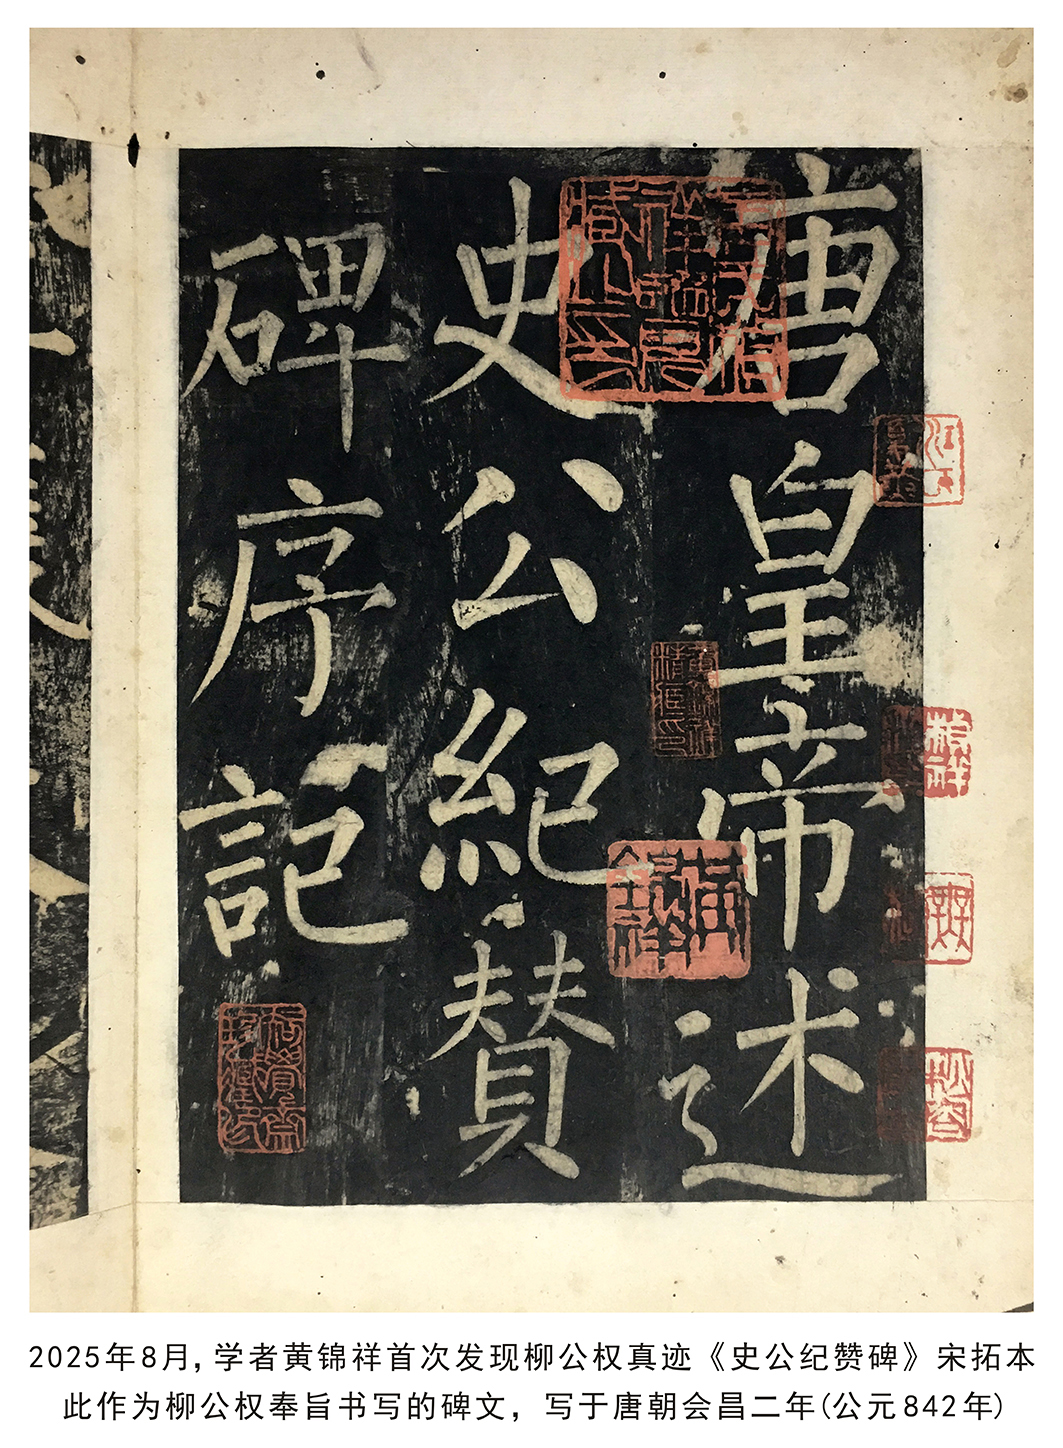 唐皇帝述
史公紀贊
碑序記
黄錦祥
2025年8月，学者黄锦祥首次发现柳公权真迹《史公纪赞碑》宋拓本
此作为柳公权奉旨书写的碑文，写于唐朝会昌二年(公元842年)